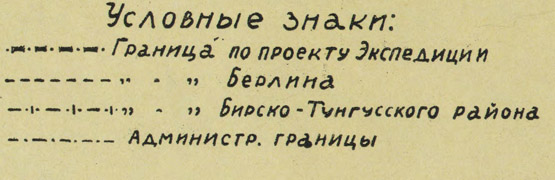 Условные знаки:
Граница по проекту Экспедиции
" - " Берлина
" - " Бирско-Тунгусского района
Администр. границы